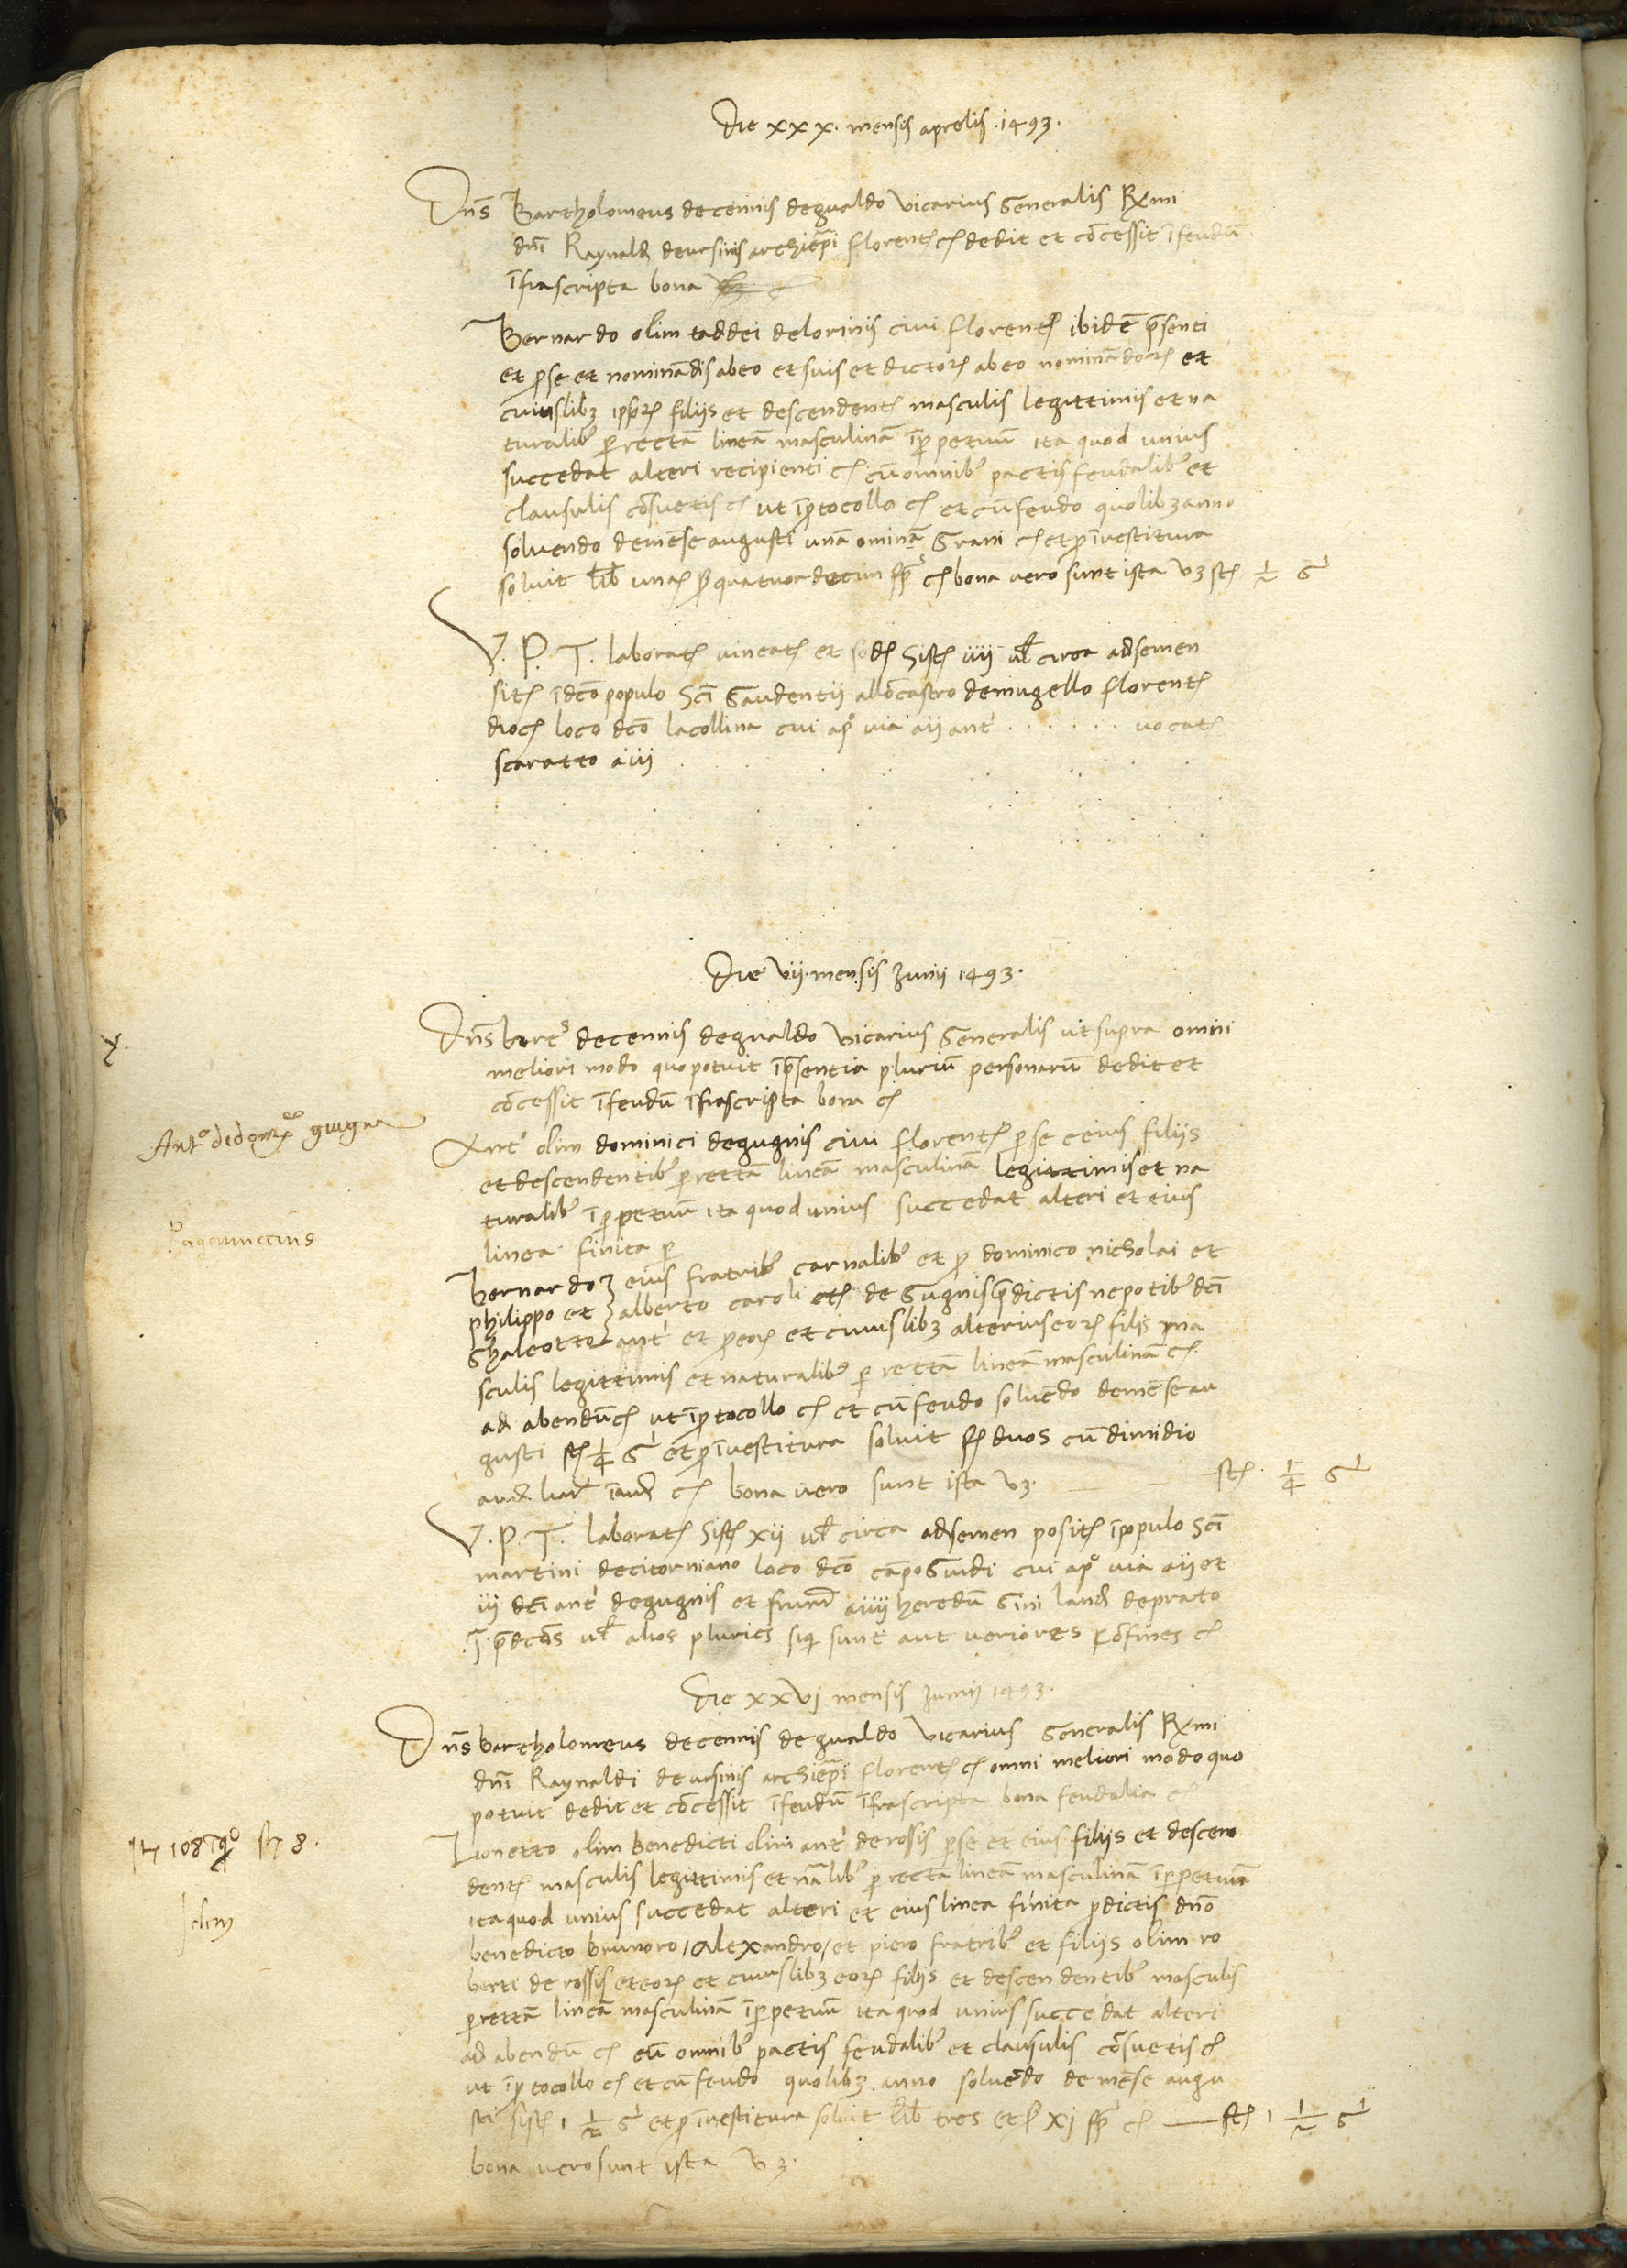 Die xxx. mensis aprelis .1493.
Dns Bartholomeus de cennis de gualdo vicarius generalis Rxmi
dni Raynaldi de ursinis archiepi florent etc dedit et concessit i feudu
ifrascripta bona
Bernardo olim taddei de lorinis civi florent ibide psenti
et p se et nominadis ab eo et suis et dictor ab eo nominador et
cuiuslibz ipsor filiis et descendent masculis legittimis et na
turalib p recta linea masculina ip petuu ita quod unius
succedat alteri recipienti etc cu omnib pactis feudalib et
clausulis cosuetis etc ut i ptocollo etc et cu feudo quolibz anno
solvendo de mense augusti una omina grani etc et p ivestitura
solvit lib una s quatuordecim etc bona vero sunt ista vz st 1/2 g
V. P. T. laborat vineat et sod sist iiii vl circa ad semen
sit i dco populo sci gaudentii allo castro de mugello florent
dioc loco dco la collina cui ap via a ii ant . . . . . . vocat
scaratto a iii
Die vii. mensis Junii 1493.
Dns bart de cennis de gualdo vicarius generalis ut supra omni
meliori modo quo potuit i psentia pluriu personaru dedit et
concessit i feudu ifrascripta bona etc
Anto di domco giugni
Ant olim dominici de gugnis civi florent p se e eius filiis
et descendentib p retta linea masculina legittimis et na
turalib ip petuu ita quod unius succedat alteri et eius
linea finita p
bernardo eius fratrib carnalib et p dominico nicholai et
philippo et alberto caroli et de gugnis pdictis nepotib dci
ghaleotto ant et p eor et cuiuslibz alterius eor filiis ma
sculis legittimis et naturalib p retta linea masculina etc
ad abendu etc ut i ptocollo etc et cu feudo solvendo de mense au
gusti st 1/4 g et p ivestitura solvit duos cu dimidio
etc bona vero sunt ista vz. st 1/4 g
V. P. T. laborat sist xii vl circa ad semen posit i populo sci
martini de citorniano loco dco capo guidi cui ap via a ii et
iii dci ant de gugnis et a iiii heredu gini de prato
I pdcos vl alios plurics siqi sunt aut veriores cofines etc
Die xxvi mensis Junii 1493.
Dns bartholomeus de cennis de gualdo vicarius generalis Rxmi
dni Raynaldi de ursinis archiepi florent etc omni meliori modo quo
potuit dedit et concessit i feudu ifrascripta bona feudalia etc
108 8.
Lionetto olim benedicti olim ant de rossis p se et eius filiis et descen
dent masculis legittimis et nalib p recta linea masculina ip petuu
ita quod unius succedat alteri et eius linea finita pdictis dno
benedicto brunoro / alexandro / et piero fratrib et filiis olim ro
berti de rossis et eor et cuiuslibz eor filiis et descendentib masculis
p retta linea masculina ip petuu ita quod unius succedat alteri
ad abendu etc cu omnib pactis feudalib et clausulis cosuetis etc
ut i ptocollo etc et cu feudo quolibz anno solvedo de mense augu
sti sist 1 1/2 g et p ivestitura solvit lib tres et s xi etc st 1 1/2 g
bona vero sunt ista vz.